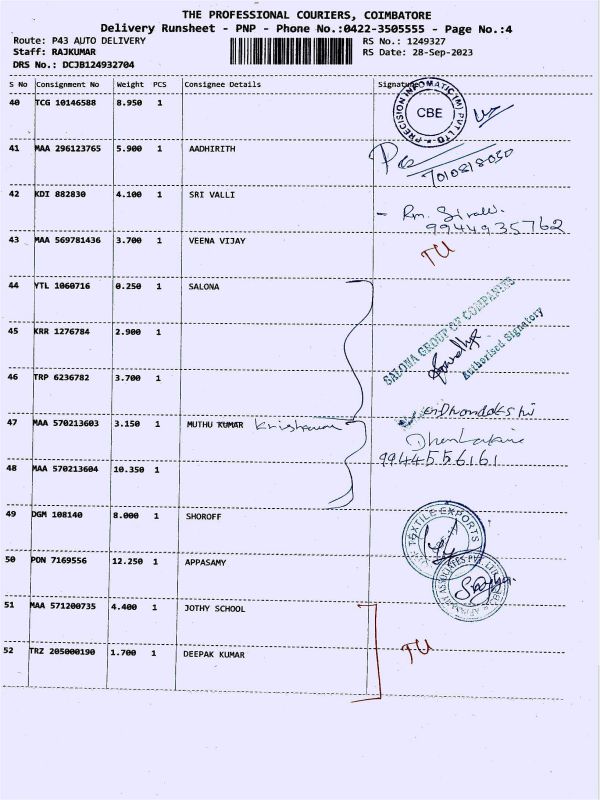 THE PROFESSIONAL COURIERS, COIMBATORE
Delivery Runsheet - PNP - Phone No.:0422-3505555 - Page No.:4
Route: P43 AUTO DELIVERY RS No.: 1249327
Staff: RAJKUMAR RS Date: 28-Sep-2023
DRS No.: DCJB124932704
S No Consignment No Weight PCS Consignee Details Signature
40 TCG 10146588 8.950 1
PRECISION INFOMATIC (M) PVT LTD
CBE
41 MAA 296123765 5.900 1 AADHIRITH
7010818050
42 KDI 882830 4.100 1 SRI VALLI
- Rm.
9944935762
43 MAA 569781436 3.700 1 VEENA VIJAY
TU
44 YTL 1060716 0.250 1 SALONA
SALONA GROUP OF COMPANIES
Authorised Signatory
45 KRR 1276784 2.900 1
46 TRP 6236782 3.700 1
47 MAA 570213603 3.150 1 MUTHU KUMAR
9944556161
48 MAA 570213604 10.350 1
49 DGM 108140 8.000 1 SHOROFF
TEXTILE EXPORTS
50 PON 7169556 12.250 1 APPASAMY
ASSOCIATES PVT. LTD.
51 MAA 571200735 4.400 1 JOTHY SCHOOL
52 TRZ 205000190 1.700 1 DEEPAK KUMAR
TU